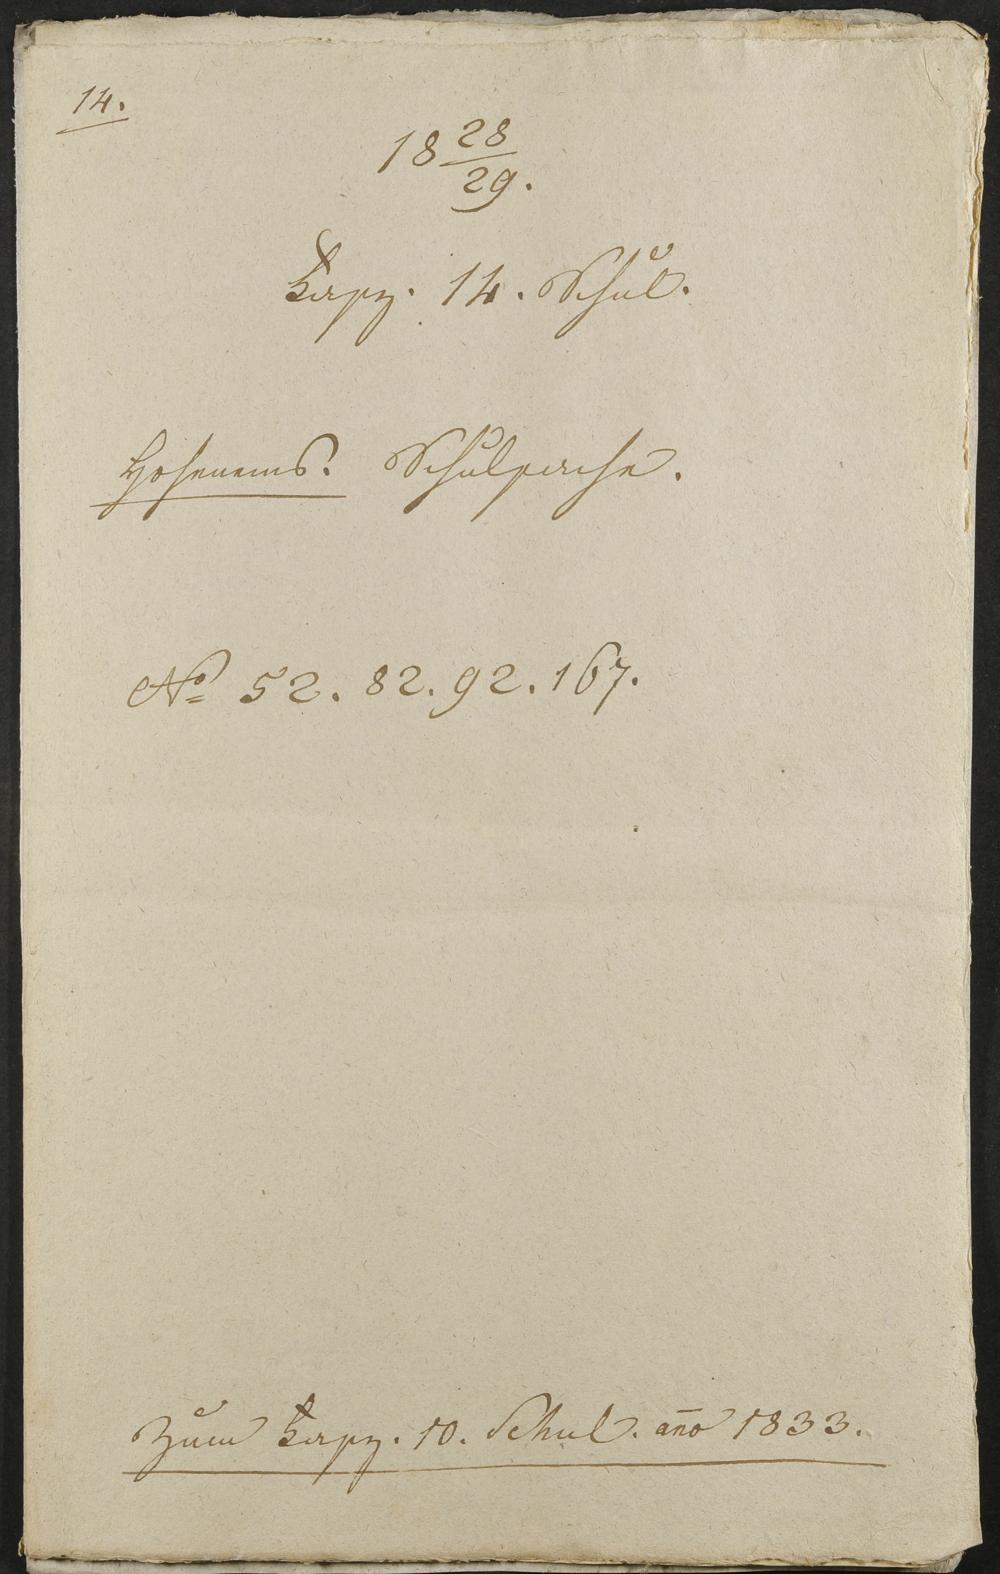 14.
18 28/29.
Fasz. 14. Schul.
Hohenems. Schulsache.
No 52. 82. 92. 167.
Zum Fasz. 10. Schul. año 1833.